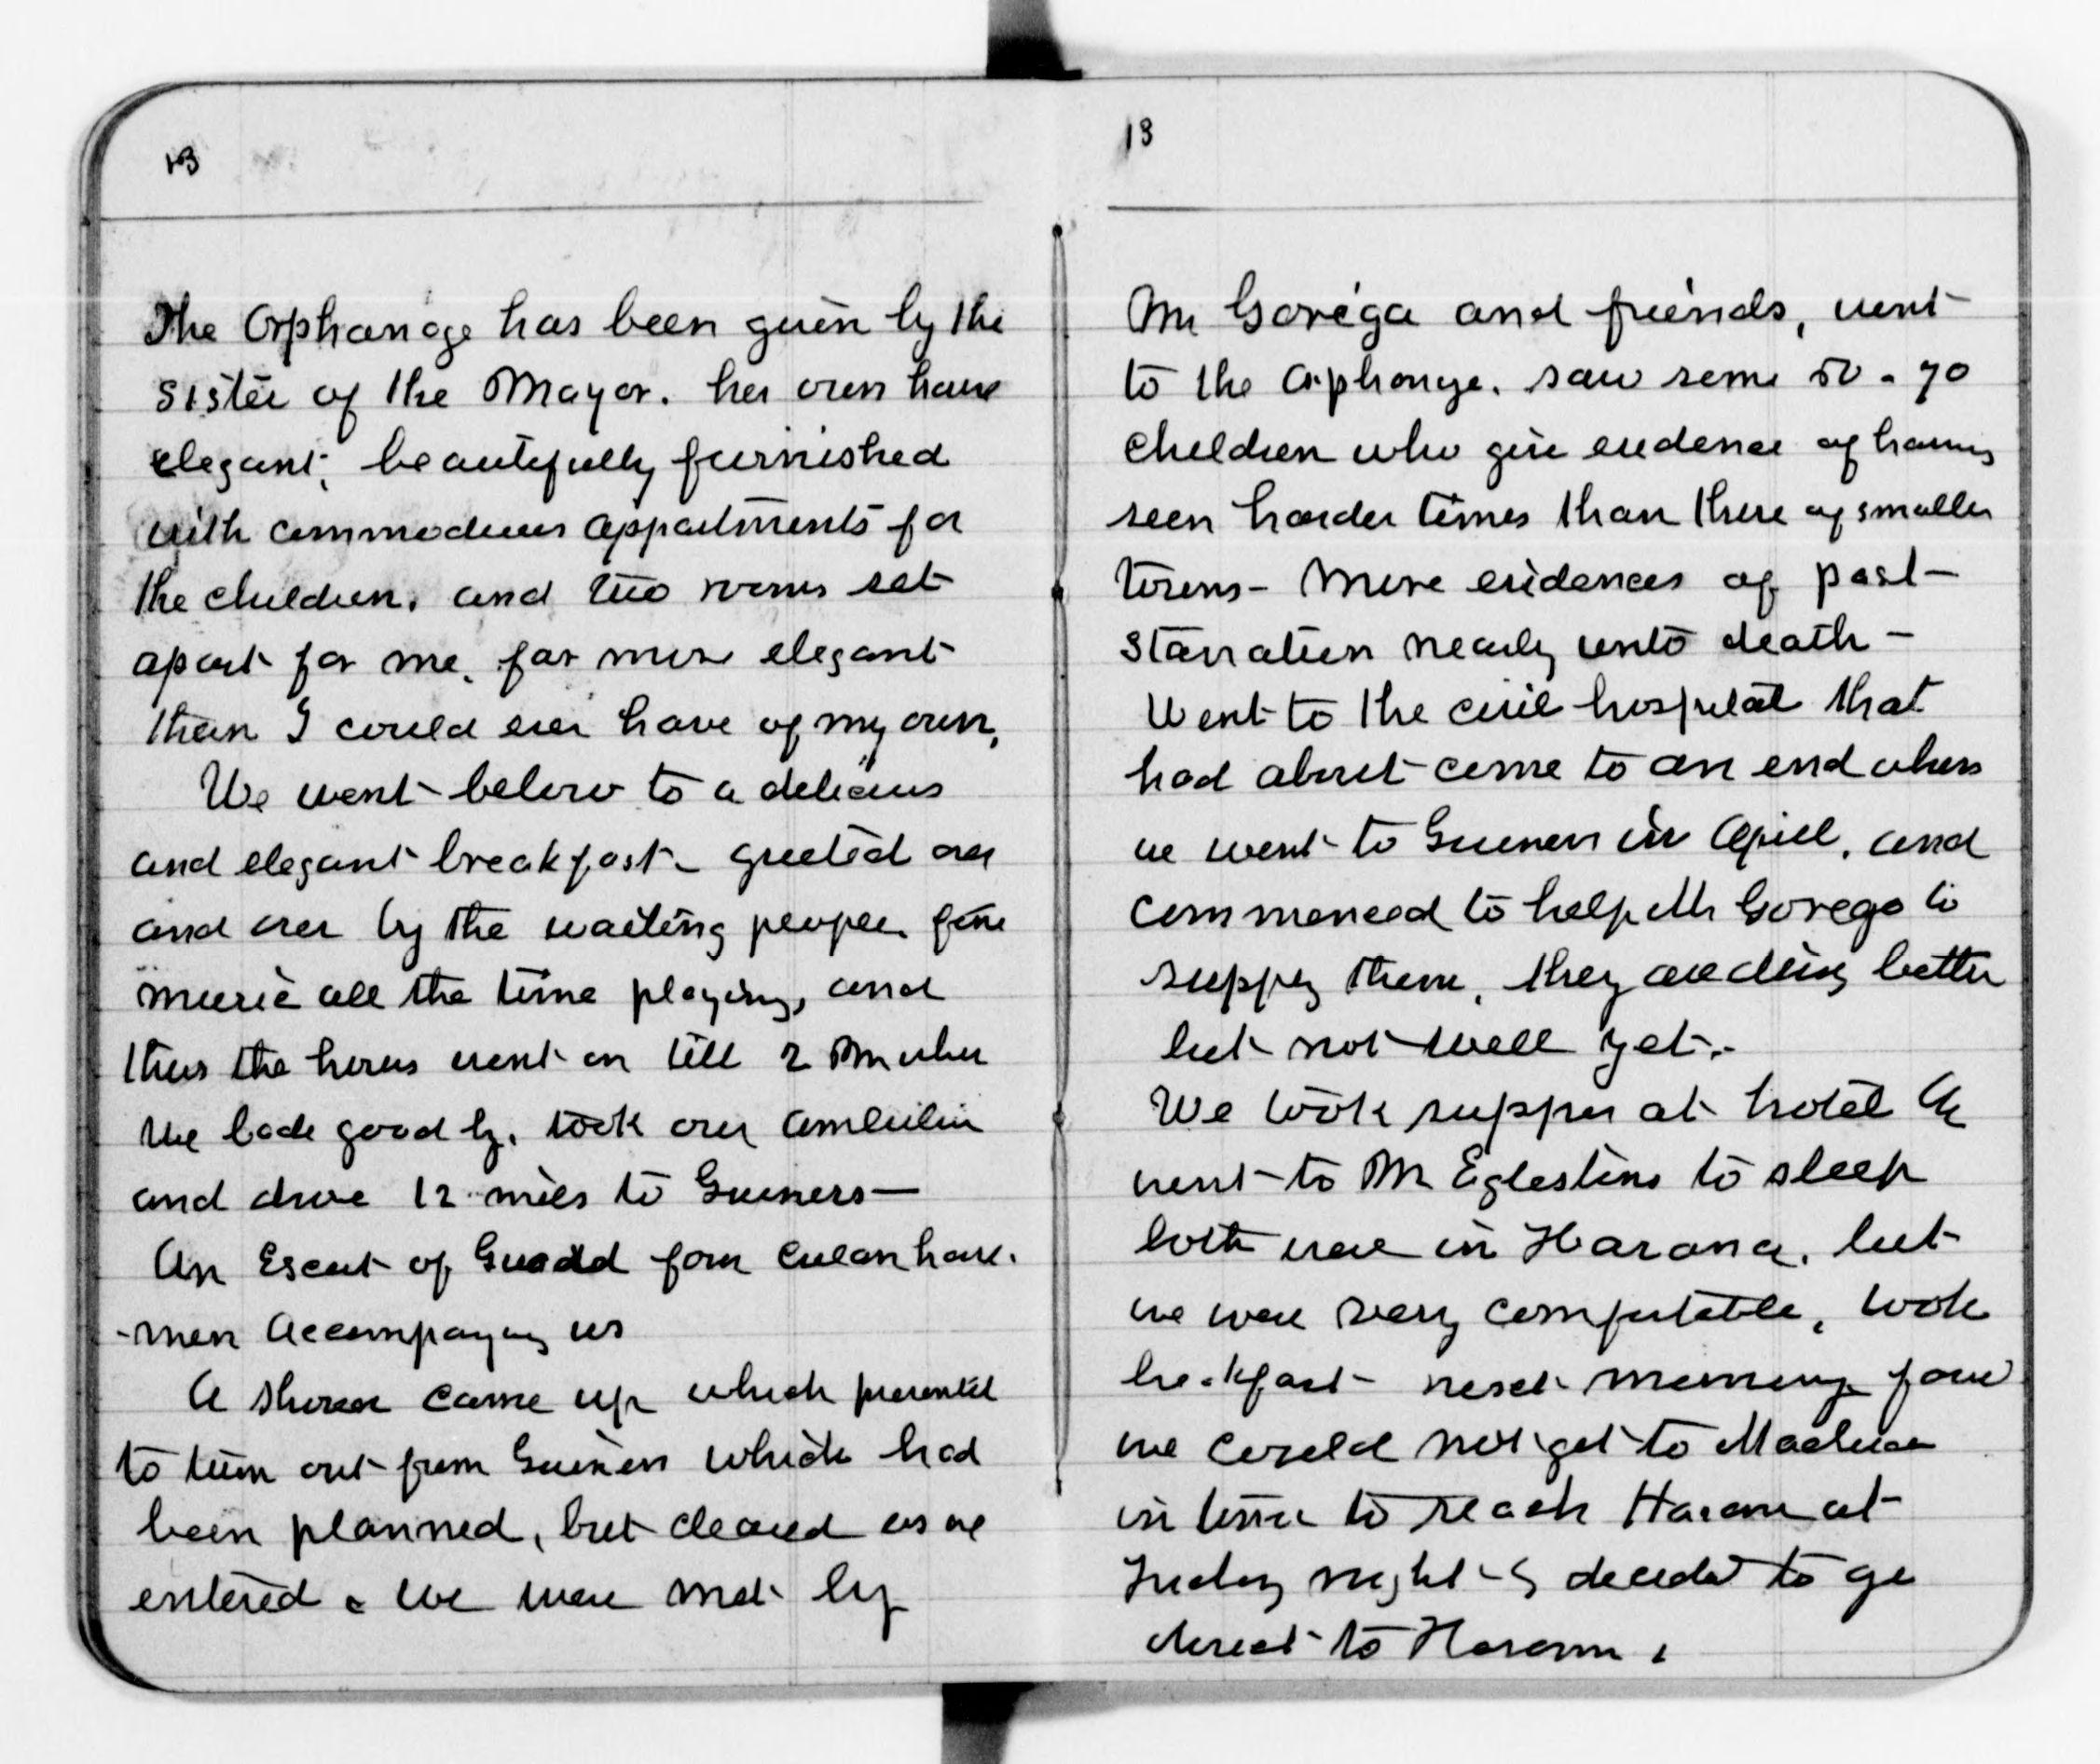 13
The Orphanage has been given by the
sister of the Mayor. her own house
elegant, beautifully furnished
with commodious appartments for
the children, and two rooms set
apart for me, far more elegant
than I could ever have of my own,
We went below to a delicious
and elegant breakfast - greeted over
and over by the waiting people. fine
music all the time playing, and
thus the hours went on till 2 PM when
We bade good by, took our
and drove 12 miles to Guiness -
An Escort of Guard four Cuban horse-
-men Accompaying us
A shower came up which prevented
to turn out from Guines which had
been planned, but cleared as we
entered & we were met by
18
Mr Gorega and friends, went
to the Orphange. saw some 50 - 70
Children who give evidence of having
seen harder times than those of smaller
towns - More evidences of past -
starvation nearly unto death -
Went to the civil hospital that
had about come to an end when
we went to Guines in April, and
commenced to help Mr Gorego to
supply them, they are doing better
but not well yet.-
We took supper at hotel &
went to Mr Eglestins to sleep
both were in Havana, but
we were very comfortable, took
breakfast - next morning found
we could not get to Madruga
in time to reach Havana at
Friday night - & decided to go
direct to Havana,